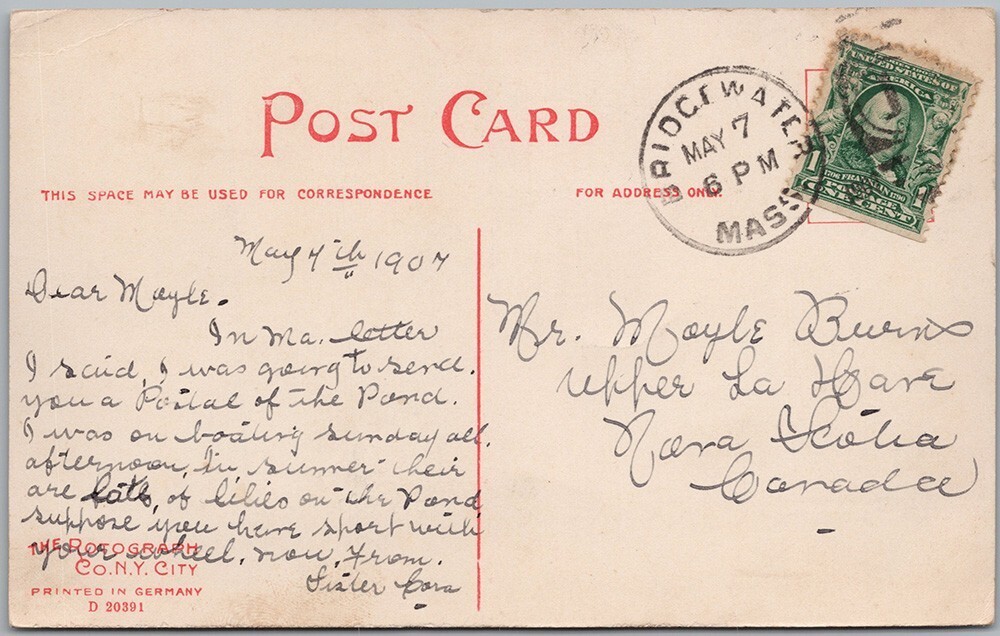 POST CARD
THIS SPACE MAY BE USED FOR CORRESPONDENCE
FOR ADDRESS ONLY.
BRIDGEWATER
MAY 7
6 PM
MASS
UNITED STATES OF
AMERICA
1706 FRANKLIN 1790
POSTAGE
1 ONE CENT 1
May 7th 1907
Dear Moyle.
In Ma. letter
I said, I was going to send.
you a Postal of the Pond.
I was on boating sunday all.
afternoon, In summer their
are lots, of lilies on the Pond
suppose you have sport with
your wheel. now. From.
Sister Cora
Mr. Moyle Burns
Upper La Have
Nova Scotia
Canada
THE ROTOGRAPH
CO. N.Y. CITY
PRINTED IN GERMANY
D 20391